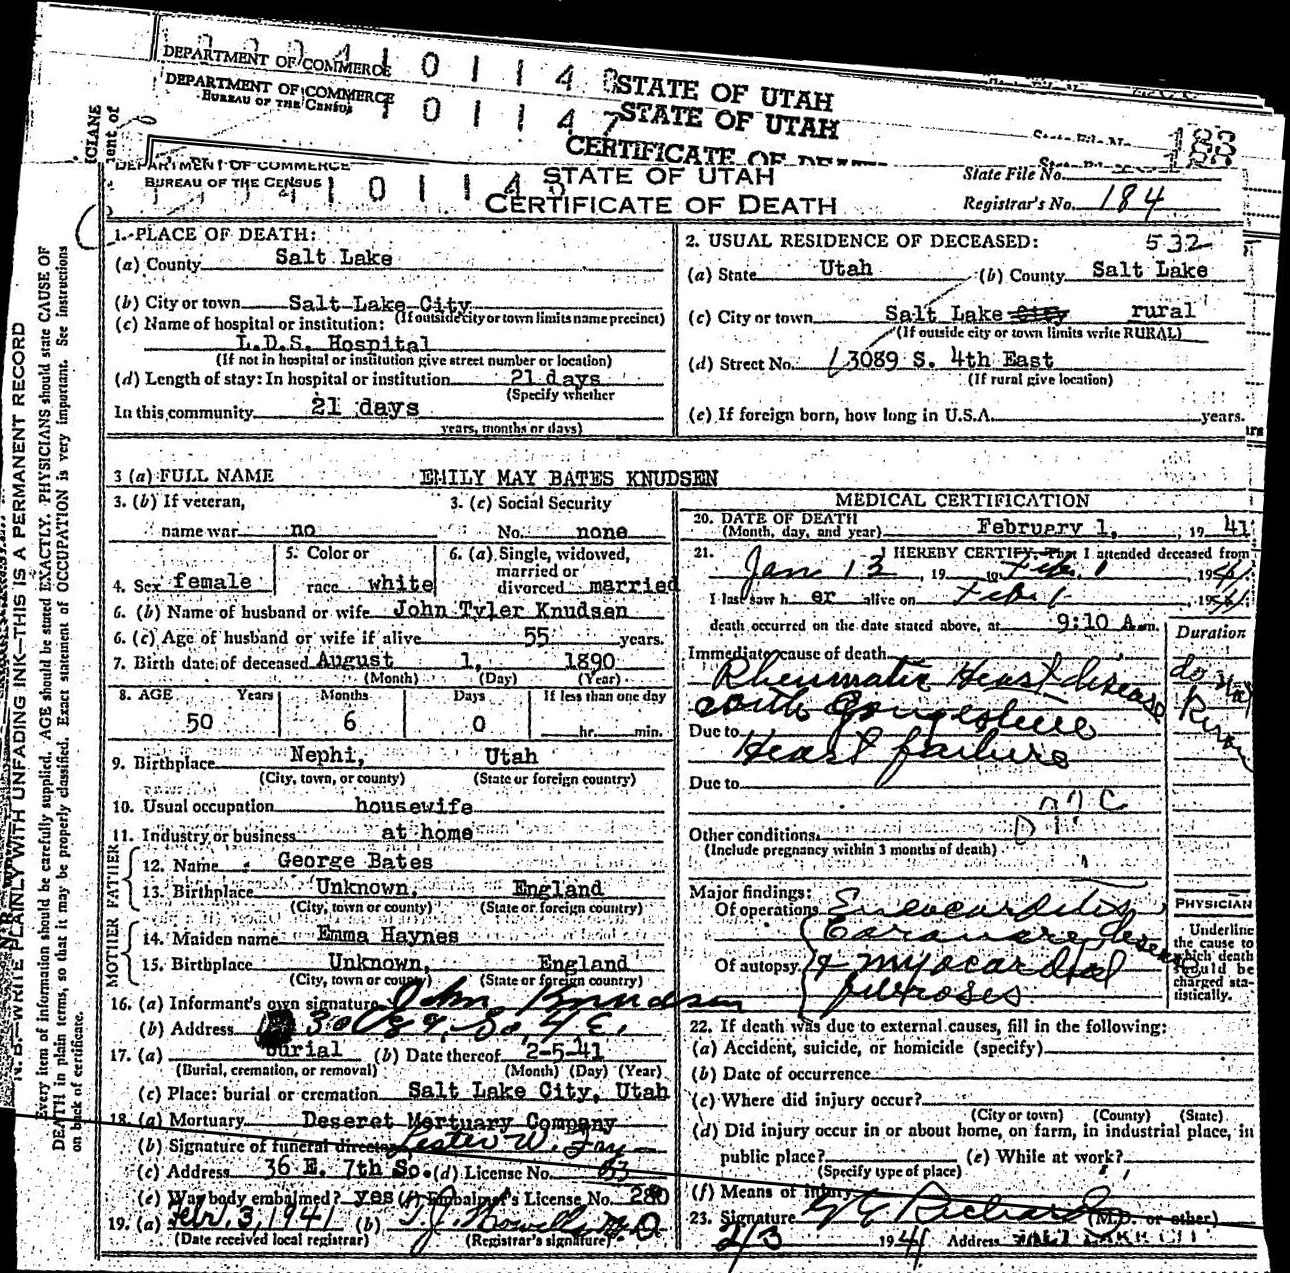 DEPARTMENT OF COMMERCE 1 0 1 1 4 STATE OF UTAH
DEPARTMENT OF COMMERCE
BUREAU OF THE CENSUS 1 0 1 1 4 7 STATE OF UTAH
CERTIFICATE OF DEATH State File No. 183
DEPARTMENT OF COMMERCE
BUREAU OF THE CENSUS 1 0 1 1 4
STATE OF UTAH
CERTIFICATE OF DEATH
State File No.
Registrar's No. 184
1. PLACE OF DEATH:
(a) County Salt Lake
(b) City or town Salt Lake City
(If outside city or town limits name precinct)
(c) Name of hospital or institution:
L.D.S. Hospital
(If not in hospital or institution give street number or location)
(d) Length of stay: In hospital or institution 21 days
(Specify whether
In this community 21 days
years, months or days)
2. USUAL RESIDENCE OF DECEASED: 532
(a) State Utah (b) County Salt Lake
(c) City or town Salt Lake City rural
(If outside city or town limits write RURAL)
(d) Street No. 3089 S. 4th East
(If rural give location)
(e) If foreign born, how long in U.S.A. years.
3 (a) FULL NAME EMILY MAY BATES KNUDSEN
3. (b) If veteran,
name war no
3. (c) Social Security
No. none
4. Sex female
5. Color or
race white
6. (a) Single, widowed,
married or
divorced married
6. (b) Name of husband or wife John Tyler Knudsen
6. (c) Age of husband or wife if alive 55 years.
7. Birth date of deceased August 1, 1890
(Month) (Day) (Year)
8. AGE Years Months Days If less than one day
50 6 0 hr. min.
9. Birthplace Nephi, Utah
(City, town, or county) (State or foreign country)
10. Usual occupation housewife
11. Industry or business at home
FATHER
12. Name George Bates
13. Birthplace Unknown, England
(City, town or county) (State or foreign country)
MOTHER
14. Maiden name Emma Haynes
15. Birthplace Unknown, England
(City, town or county) (State or foreign country)
16. (a) Informant's own signature John Knudsen
(b) Address 3089 So. 4 E.
17. (a) burial (b) Date thereof 2-5-41
(Burial, cremation, or removal) (Month) (Day) (Year)
(c) Place: burial or cremation Salt Lake City, Utah
18. (a) Mortuary Deseret Mortuary Company
(b) Signature of funeral director Lester W. Fay
(c) Address 36 E. 7th So. (d) License No.
(e) Was body embalmed? yes (f) Embalmer's License No. 280
19. (a) Feb. 3, 1941 (b) T. J. Howells M.D
(Date received local registrar) (Registrar's signature)
MEDICAL CERTIFICATION
20. DATE OF DEATH
(Month, day, and year) February 1, 19 41
21. I HEREBY CERTIFY, That I attended deceased from
Jan 13, 19 to Feb. 1, 1941
I last saw h er alive on Feb 1, 1941
death occurred on the date stated above, at 9:10 A.m.
Duration
Immediate cause of death
Rheumatic Heart disease do not
with Congestive
Due to Heart failure
Due to
Other conditions
(Include pregnancy within 3 months of death)
Major findings:
Of operations Endocarditis
Coronary disease
Of autopsy & myocardial
fibroses
PHYSICIAN
Underline
the cause to
which death
should be
charged sta-
tistically.
22. If death was due to external causes, fill in the following:
(a) Accident, suicide, or homicide (specify)
(b) Date of occurrence
(c) Where did injury occur?
(City or town) (County) (State)
(d) Did injury occur in or about home, on farm, in industrial place, in
public place? (e) While at work?
(Specify type of place)
(f) Means of injury
23. Signature G G Richards (M.D. or other)
2/3 1941 Address SALT LAKE CITY
N.B.—WRITE PLAINLY WITH UNFADING INK—THIS IS A PERMANENT RECORD
Every item of information should be carefully supplied. AGE should be stated EXACTLY. PHYSICIANS should state CAUSE OF
DEATH in plain terms, so that it may be properly classified. Exact statement of OCCUPATION is very important. See instructions
on back of certificate.